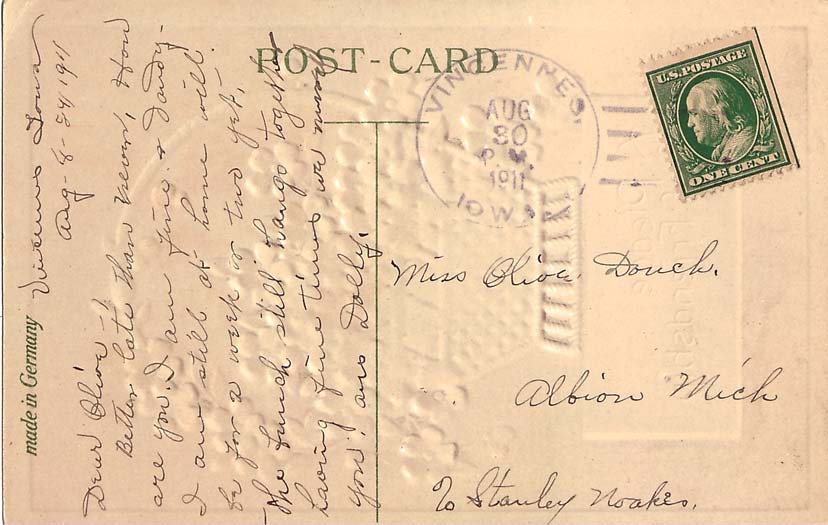 POST-CARD
VINCENNES,
AUG
30
P M.
1911
IOWA
U.S. POSTAGE
ONE CENT
made in Germany
Vincennes Iowa
Aug-8-29 1911
Dear Olive -!
Better late than never, How
are you. I am fine & dandy-
I am still at home will
be for a week or two yet,
The bunch still hangs together
having fine times we miss
you! ans Dolly.
Miss Olive Douch.
Albion Mich
℅ Stanley Noakes.